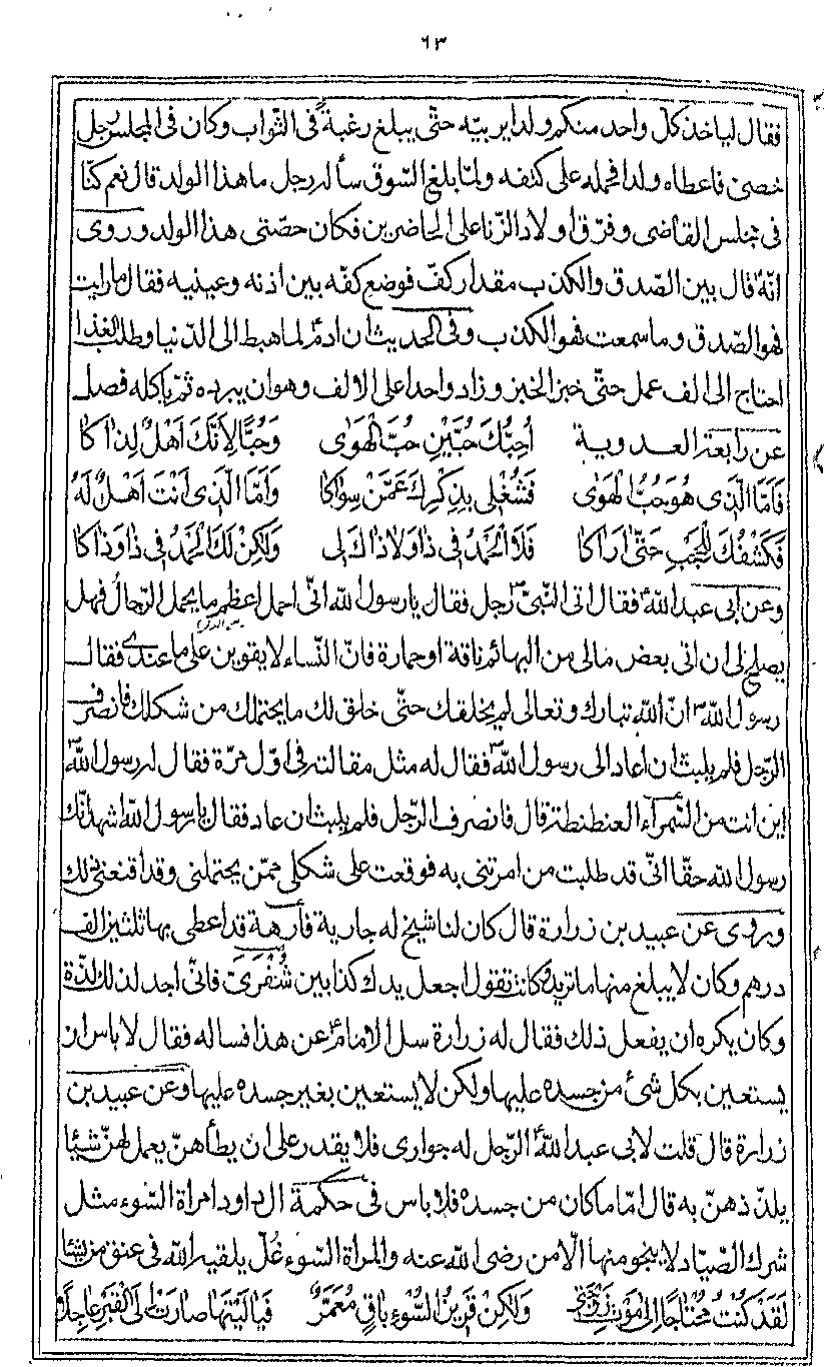 ٦٣
فقال لياخذ كلّ واحد منكم ولدا يربيّه حتّى يبلغ رغبة فى الثّواب وكان فى المجلس رجل
خصىّ فاعطاه ولدا فحمله على كتفه ولمّا بلغ السّوق سأله رجل ما هذا الولد قال نعم كنّا
فى مجلس القاضى وفرّق اولاد الزّنا على الحاضرين فكان حصّتى هذا الولد وروى
انّه قال بين الصّدق والكذب مقدار كفّ فوضع كفّه بين اذنه وعينيه فقال ما رايت
فهو الصّدق وما سمعت فهو الكذب وفى الحديث ان ادم لما هبط الى الدّنيا وطلب الغذا
احتاج الى الف عمل حتّى خبز الخبز وزاد واحدا على الالف وهو ان يبرده ثمّ ياكله فصل
عن رابعة العدوية اُحِبُّكَ حُبَّيْنِ حُبَّ الْهَوٰى وَحُبًّا لِاَنَّكَ اَهْلٌ لِذاكا
فَاَمَّا الَّذِى هُوَ حُبُّ الْهَوٰى فَشُغْلِى بِذِكْرِكَ عَمَّنْ سِوٰاكا وَاَمَّا الَّذِى اَنْتَ اَهْلٌ لَهُ
فَكَشْفُكَ لِلْحُجْبِ حَتّٰى اَرٰاكا فَلَا الْحَمْدُ فى ذا وَلا ذاكَ لى وَلٰكِنْ لَكَ الْحَمْدُ فى ذا وَذاكا
وعن ابى عبد اللّه فقال اتى النّبىّ رجل فقال يا رسول اللّه انّى احمل اعظم ما يحمل الرّجال فهل
يصلح لى ان اتى بعض مالى من البهائم ناقة او حمارة فانّ النّساء لا يقوين على ما عندى فقال
رسول اللّه انّ اللّه تبارك وتعالى لم يخلقك حتّى خلق لك ما يحتملك من شكلك فانصرف
الرّجل فلم يلبث ان عاد الى رسول اللّه فقال له مثل مقالته فى اوّل مرّة فقال له رسول اللّه
اين انت من السّمرآء العنطنطة قال فانصرف الرّجل فلم يلبث ان عاد فقال يا رسول اللّه اشهد انّك
رسول اللّه حقّا انّى قد طلبت من امرتنى به فوقعت على شكلى ممّن يحتملنى وقد اقنعنى ذلك
وروى عن عبيد بن زرارة قال كان لنا شيخ له جارية فارهة قد اعطى بها ثلثين الف
درهم وكان لا يبلغ منها ما تريد وكانت تقول اجعل يدك كذا بين شُفْرَىّ فانّى اجد لذلك لذّة
وكان يكره ان يفعل ذلك فقال له زرارة سل الامام عن هذا فساله فقال لا باس ان
يستعين بكل شئ من جسده عليها ولكن لا يستعين بغير جسده عليها وعن عبيد بن
زرارة قال قلت لابى عبد اللّه الرّجل له جوارى فلا يقدر على ان يطأهنّ يعمل لهنّ شيئا
يلذّذهنّ به قال امّا ما كان من جسده فلا باس فى حكمة ال داود امراة السّوء مثل
شرك الصّيّاد لا ينجو منها الّا من رضى اللّه عنه والمراة السّوء غُلّ يلقيه اللّه فى عنق من يشا
لَقَدْ كُنْتُ مُحْتاجًا اِلى مَوْتِ زَوْجَتى وَلٰكِنْ قَرينُ السُّوْءِ باقٍ مُعَمَّرٌ فَيالَيْتَها صارَتْ اِلَى الْقَبْرِ عاجِلًا